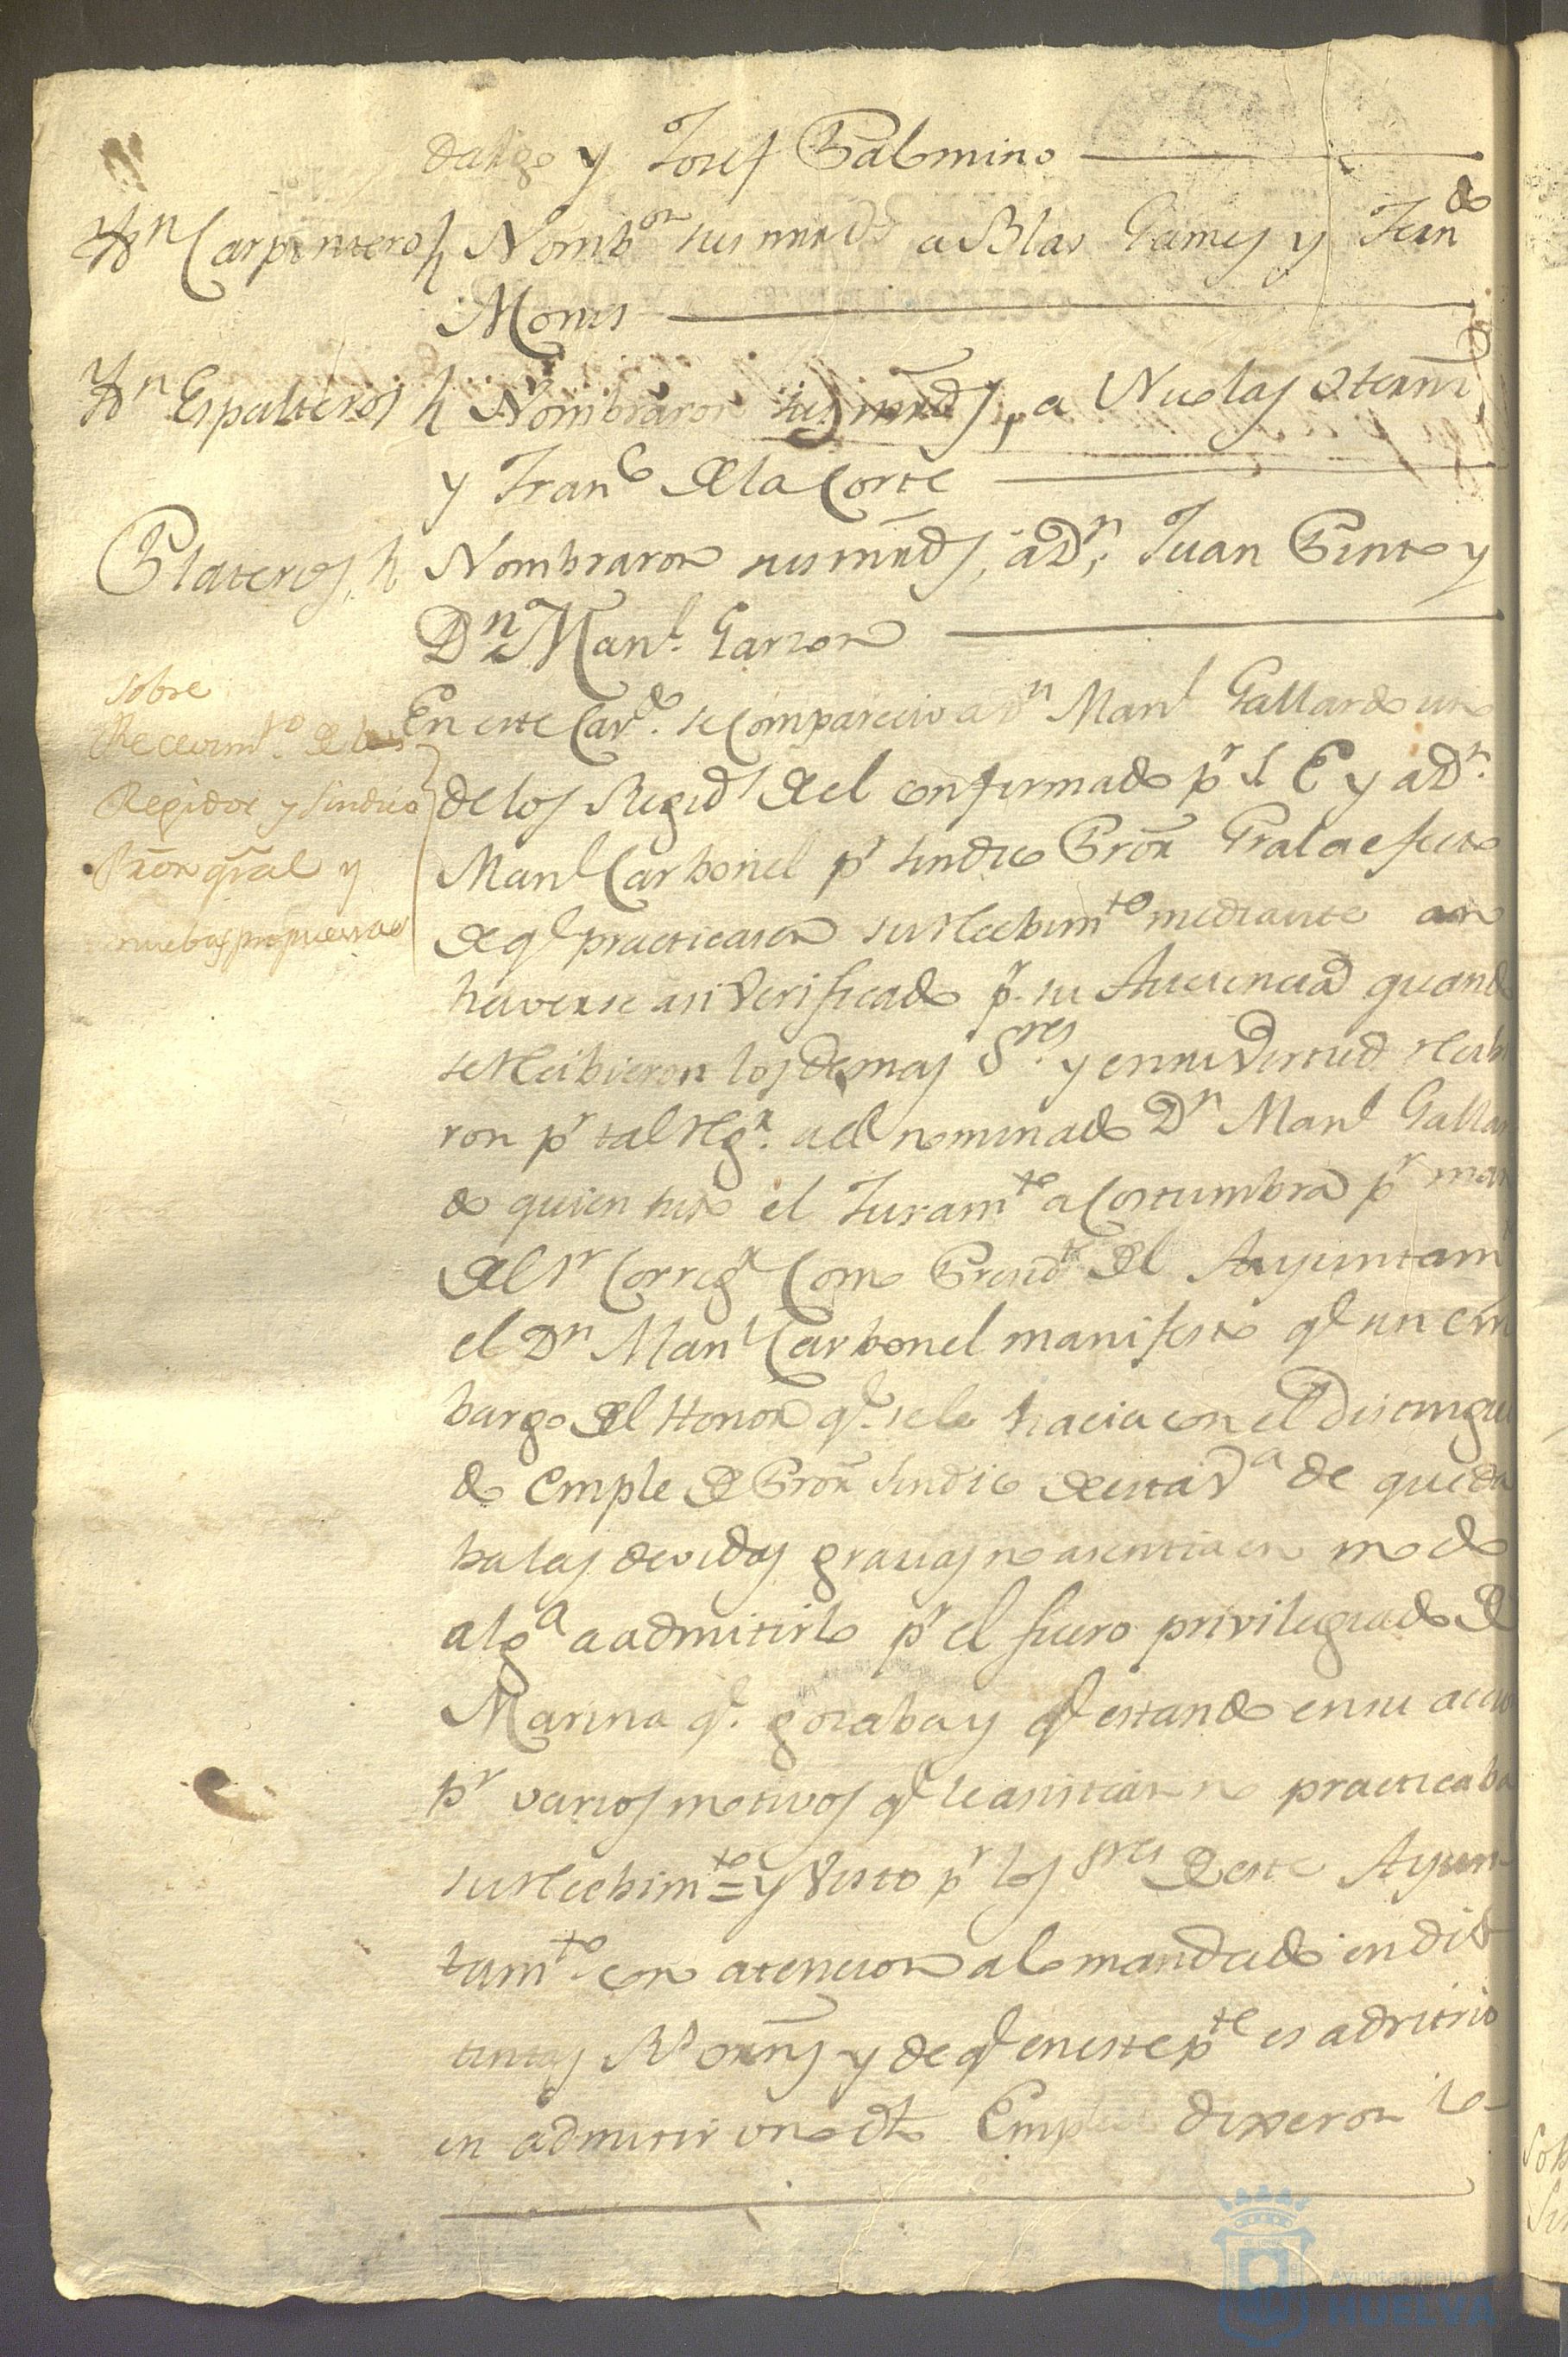 dalgo y Josef Palmino
Yd.n Carpinteros Nomb.on sus mrds a Blas Gamez y Fern.do
Mones
Yd.n Espalteros Nombraron sus mrds, a Nicolas
y Fran.co de la Corte
Plateros Nombraron sus mrds, a D.n Juan Pinto y
D.n Man.l Garzon
sobre
Recevim.to de los
Regidor y Sindico
Pror gral y
nuebas propuestas
En este Cav.do se comparecio a D.n Man.l Gallardo uno
de los Regid.s de el confirmado p.r S. E y a D.n
Man.l Carbonel p.r Sindico Pror Gral a efecto
de q.e practicasen su recibim.to mediante a no
haverse asi Verificado p.r su Ausencia quando
se recibieron los demas S.res y en su Virtud recibie
ron p.r tal reg.r a el nominado D.n Man.l Gallar
do quien hizo el Juram.to acostumbrado p.r
del S.r Correg.r Como Presid.te del Ayuntam.to
el D.n Man.l Carbonel manifesto q.e sin em
bargo del Honor q.e se le hacia con el distingui
do Empleo de Pror Sindico de esta V.a de que da
ba las devidas gracias no asentia en modo
alg.o a admitirlo p.r el fuero privilegiado de
Marina q.e gozaba y q.e estando en su accio
p.r varios motivos q.e le asistian no practicaba
su recibim.to = y Visto p.r los S.res de este Ayun-
tam.to con atencion a lo mandado en dis
tintas R.s orns y de q.e en este p.te es advitrio
en admitir o no dho Empleo dixeron